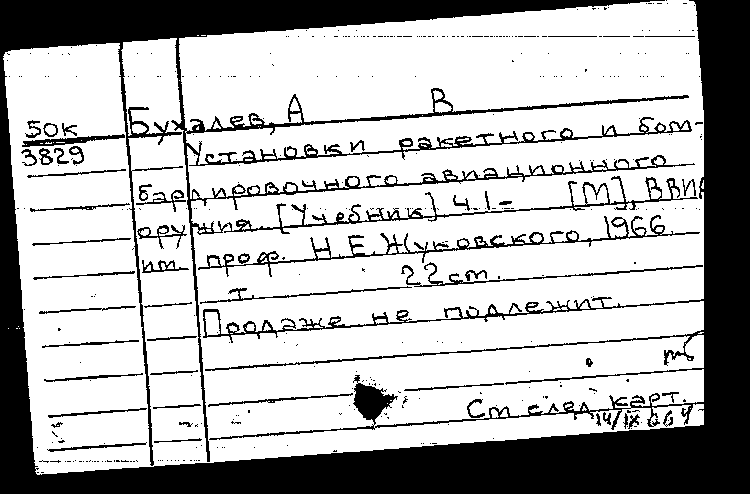 50к Бухалев, А В
3829 Установки ракетного и бом-
бардировочного авиационного
оружия. [Учебник] Ч.1- [М], ВВИА
им. проф. Н.Е.Жуковского, 1966.
т. 22 ст.
Продаже не подлежит.
См след карт.
14/IX